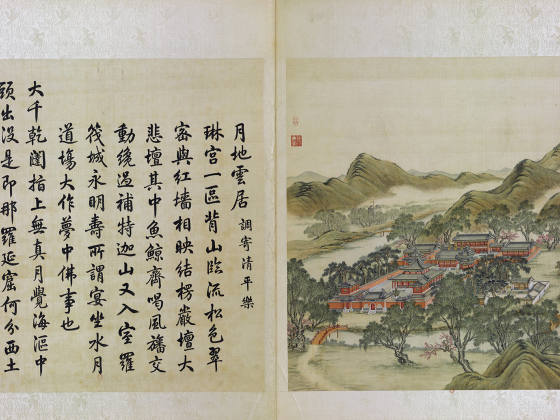 月地雲居 調寄清平樂
琳宫一區背山臨流松色翠
密與紅墻相映結楞嚴壇大
悲壇其中魚鯨齊喝風旛交
動纔過補特迦山又入室羅
筏城永明壽所謂宴坐水月
道場大作夢中佛事也
大千乾闥指上無真月覺海漚中
頭出沒是即那羅延窟何分西土